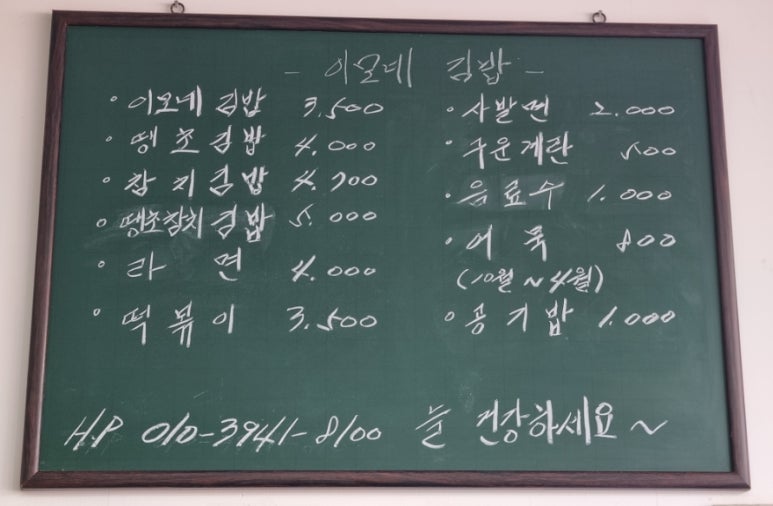 - 이모네 김밥 -
· 이모네 김밥 3.500
· 땡초김밥 4.000
· 참치김밥 4.700
· 땡초참치김밥 5.000
· 라 면 4.000
· 떡볶이 3.500
· 사발면 2.000
· 구운계란 500
· 음료수 1.000
· 어 묵 800
(10월 ~ 4월)
· 공기밥 1.000
H.P 010-3941-8100 늘 건강하세요 ~